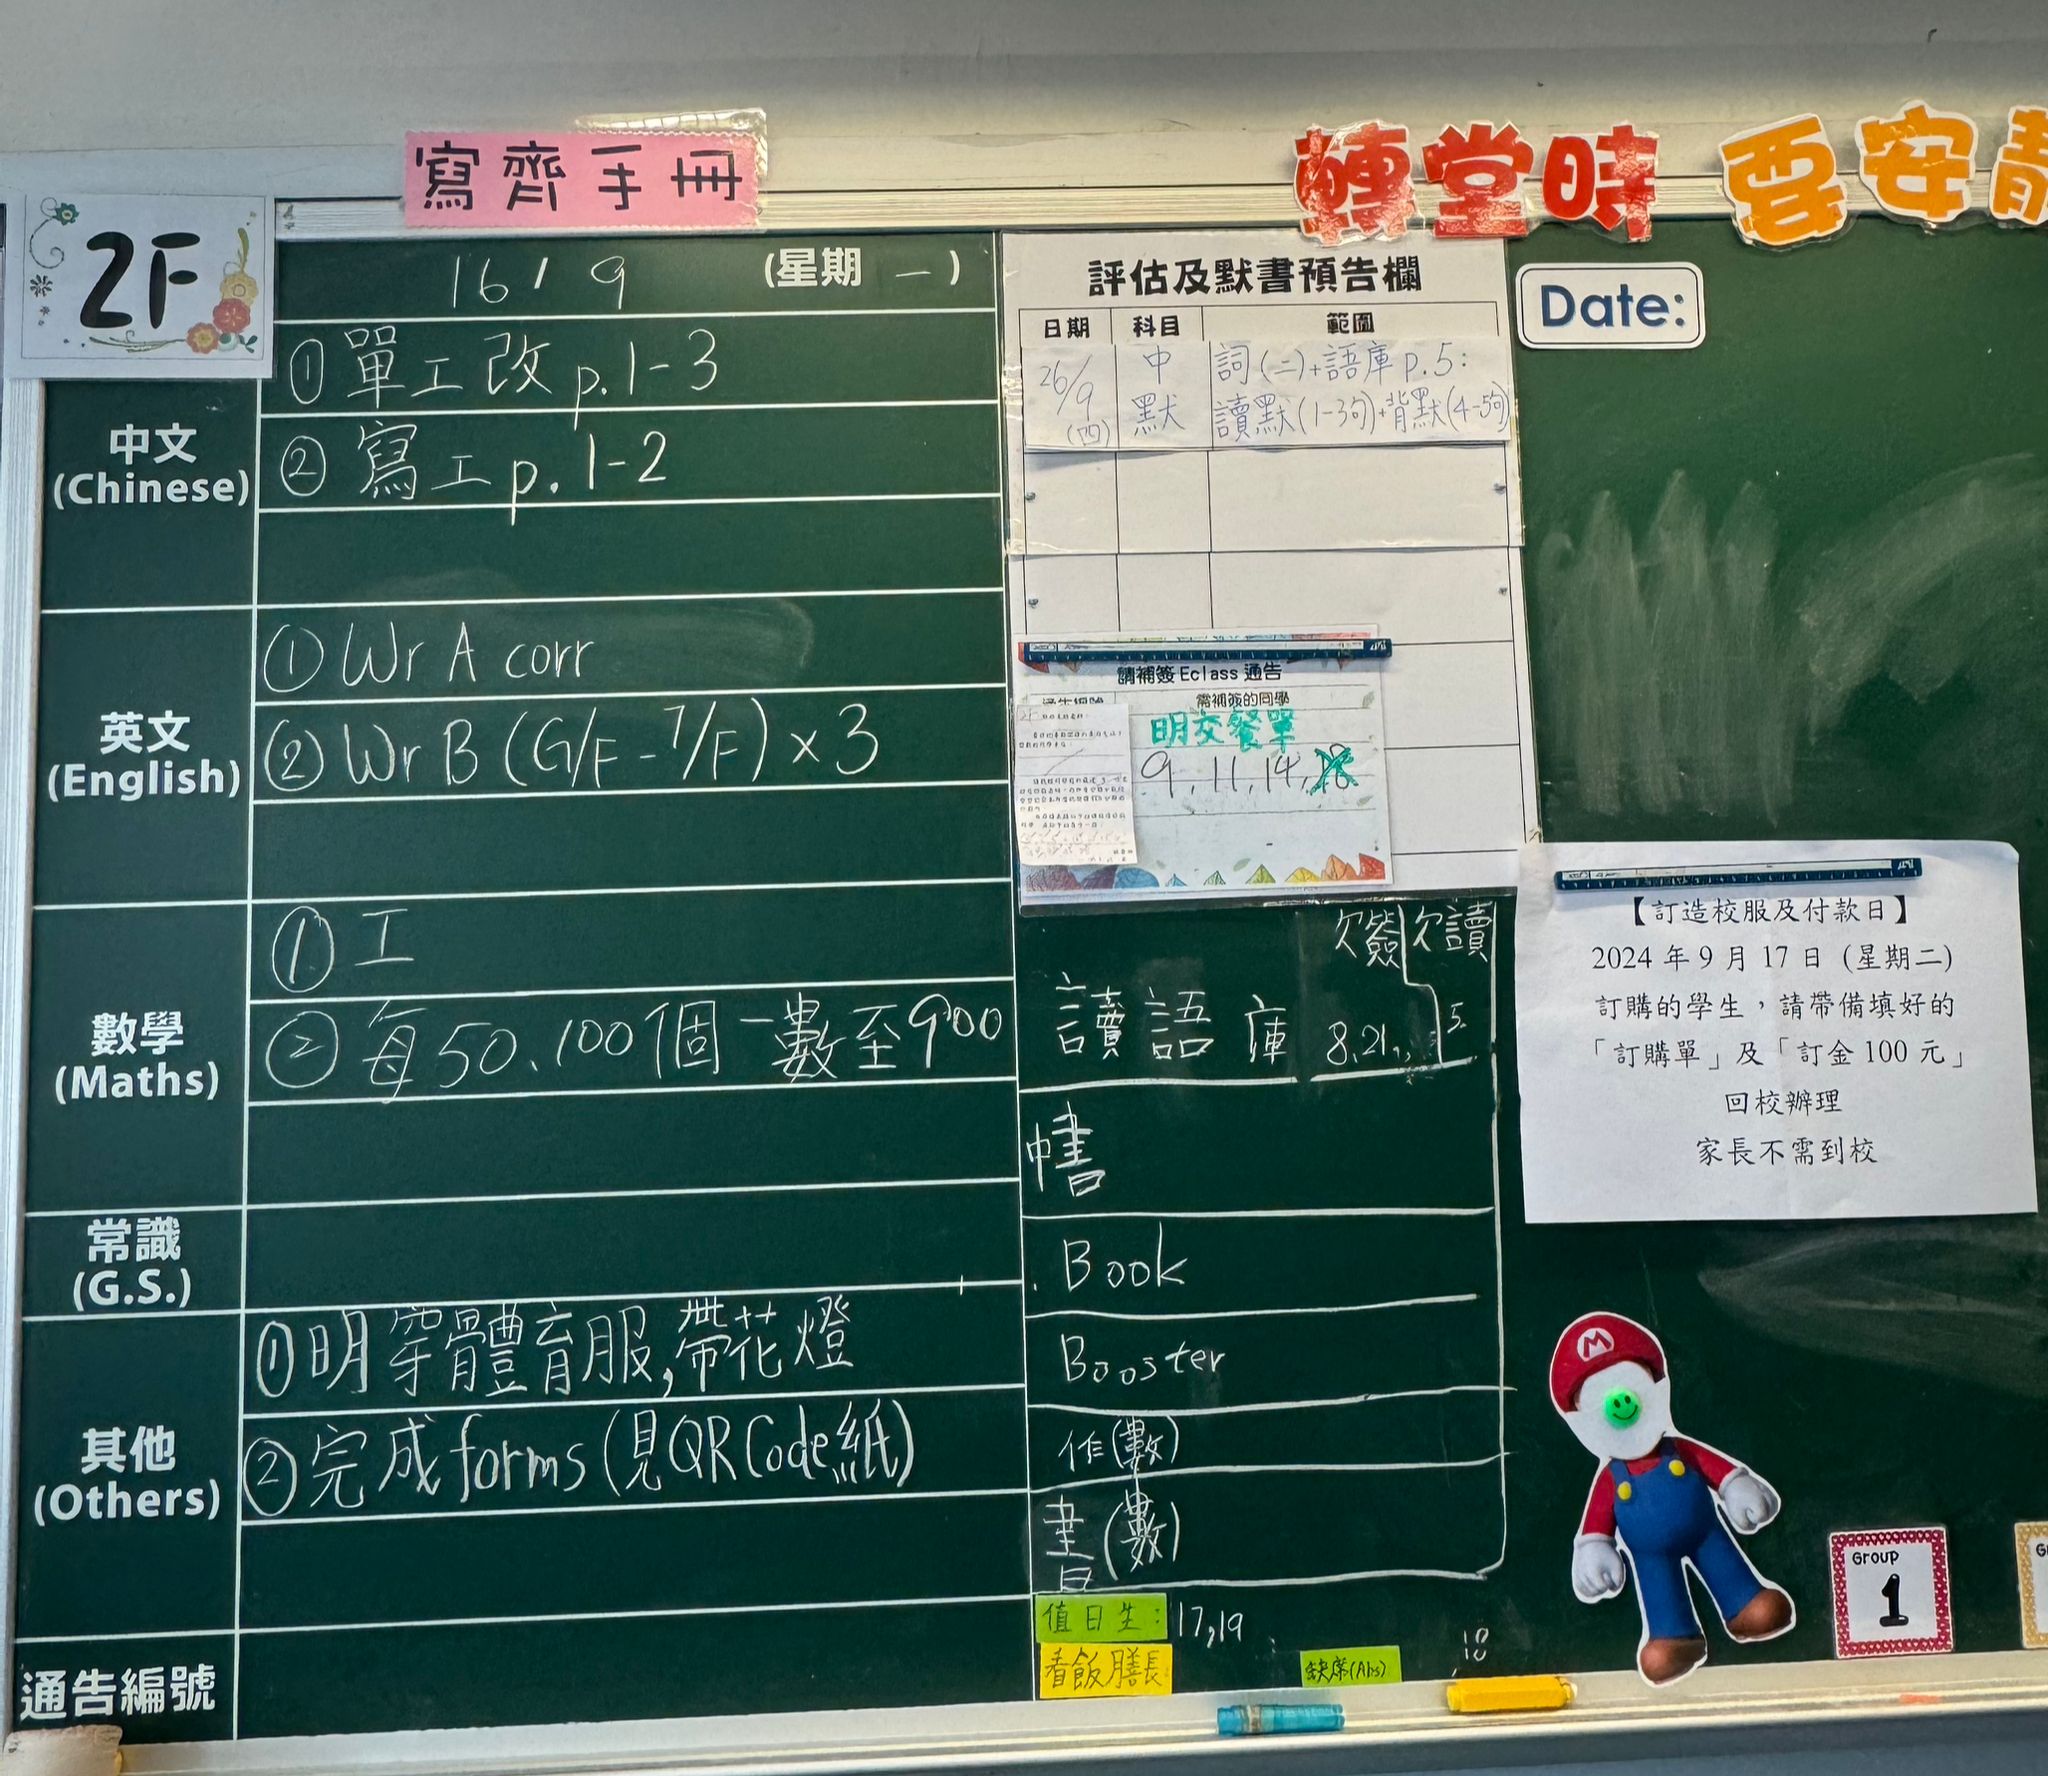 寫齊手冊
轉堂時 要安靜
2F
16/9 (星期一)
中文
(Chinese)
① 單工改 p.1-3
② 寫工 p.1-2
英文
(English)
① Wr A corr
② Wr B (G/F - 7/F) × 3
數學
(Maths)
① 工
② 每50、100個一數至900
常識
(G.S.)
其他
(Others)
① 明穿體育服,帶花燈
② 完成 forms (見QR Code紙)
通告編號
評估及默書預告欄
日期 科目 範圍
26/9 (四) 中默 詞(二)+語庫 p.5:
讀默(1-3句)+背默(4-5句)
請補簽 Eclass 通告
通告編號 需補簽的同學
明交餐單
9, 11, 14,
欠簽 欠讀
讀語庫 8, 21, 5
中書
Book
Booster
作(數)
書(數)
值日生: 17, 19
看飯膳長
缺席(Abs)
Date:
【訂造校服及付款日】
2024 年 9 月 17 日 (星期二)
訂購的學生，請帶備填好的
「訂購單」及「訂金 100 元」
回校辦理
家長不需到校
M
GROUP
1